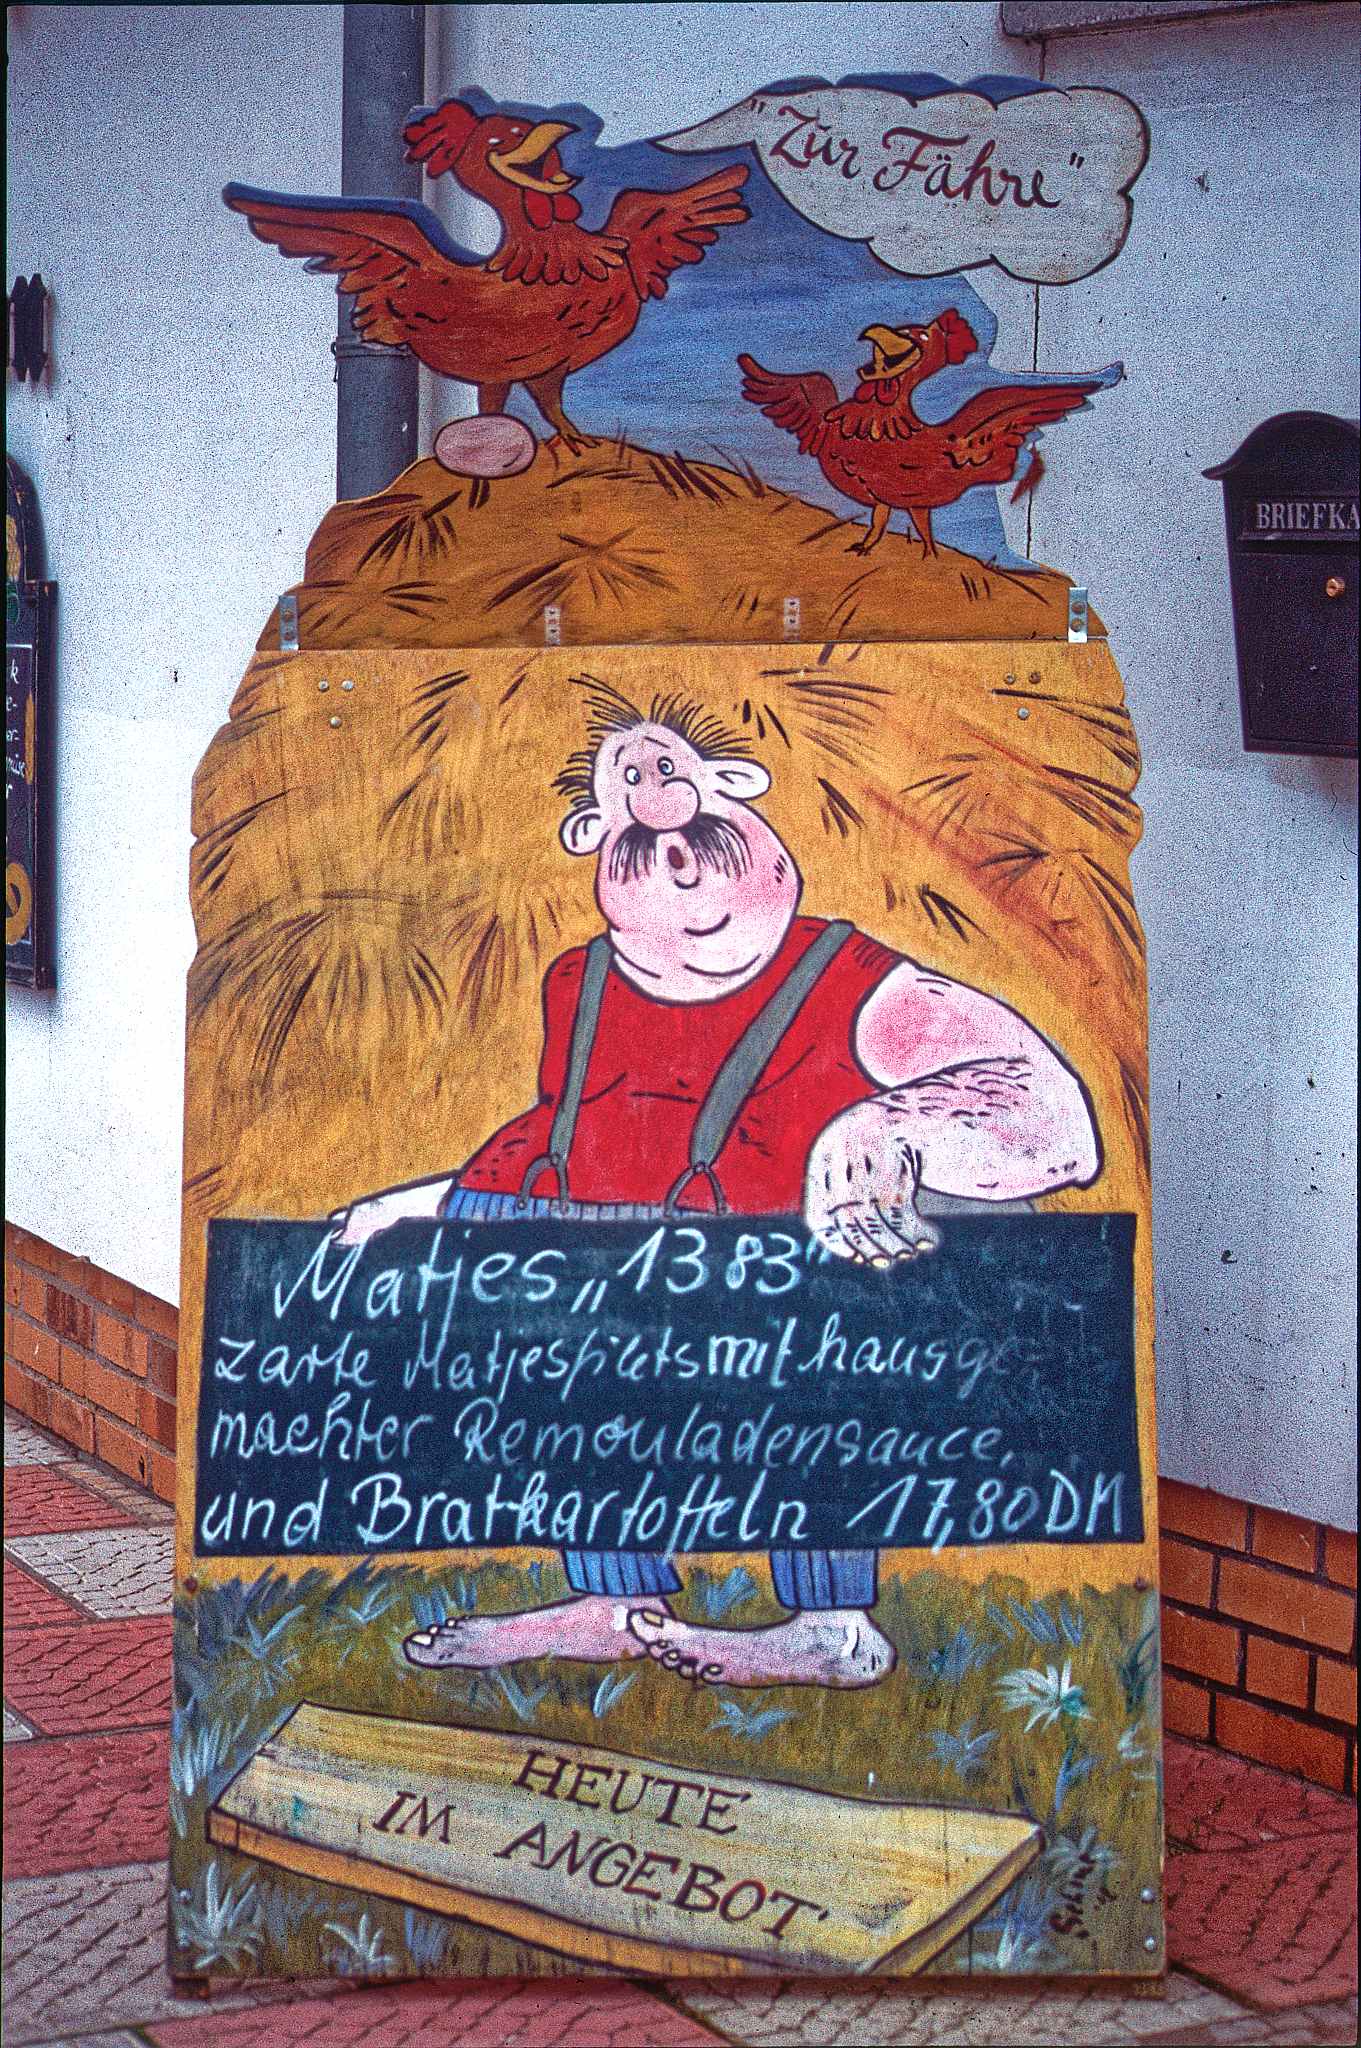 "Zur Fähre"
BRIEFKA
Matjes „1383"
zarte Matjesfilets mit hausge
machter Remouladensauce,
und Bratkartoffeln 17,80 DM
HEUTE
IM ANGEBOT